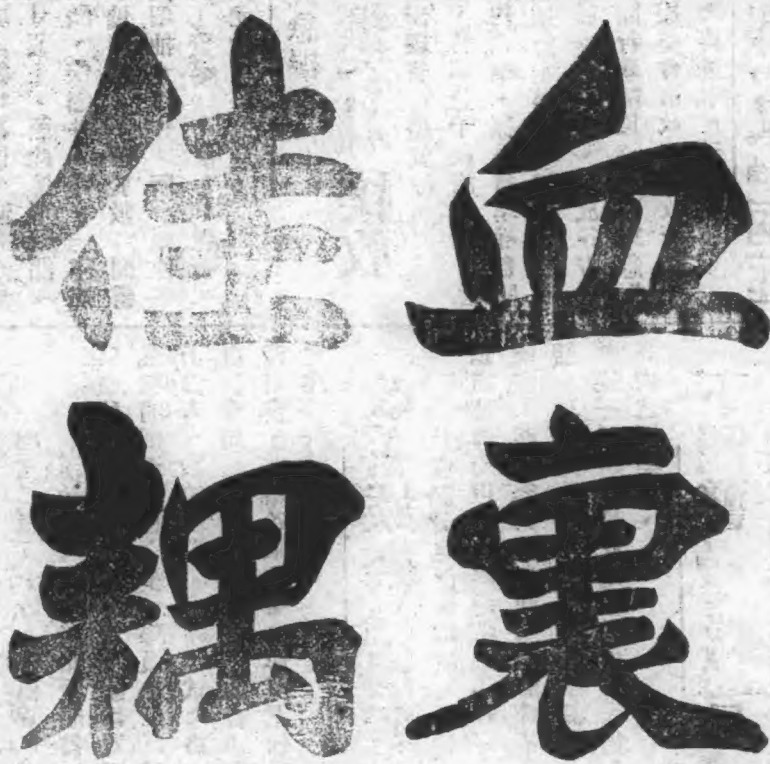 血裏
佳耦